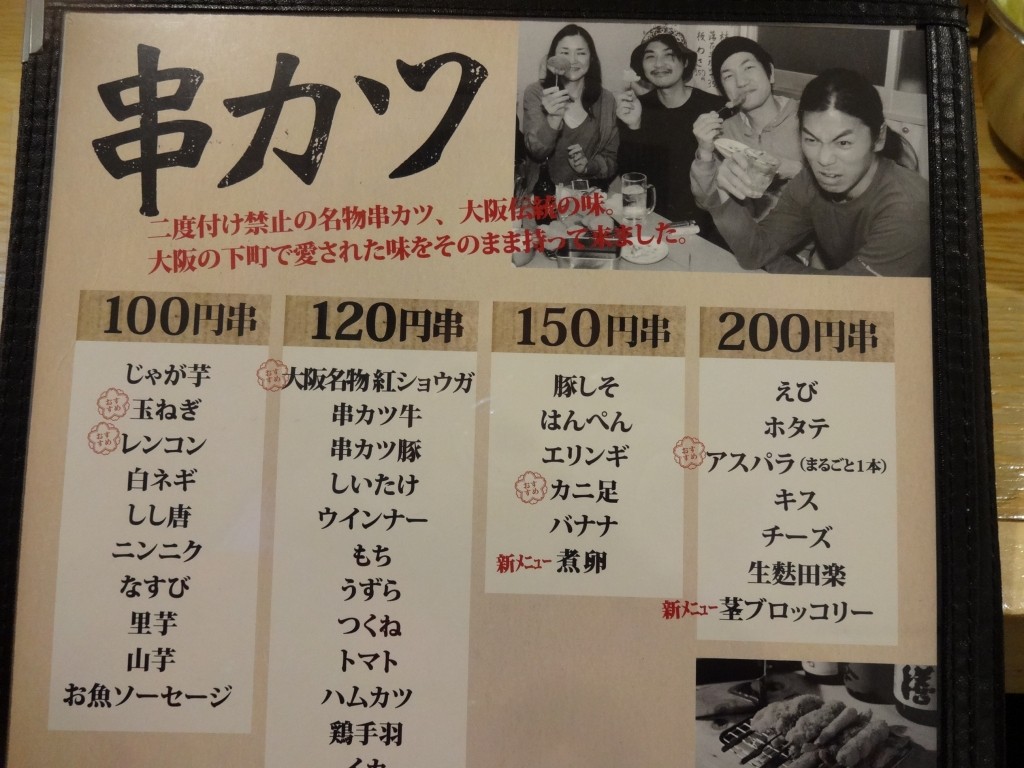 串カツ
二度付け禁止の名物串カツ、大阪伝統の味。
大阪の下町で愛された味をそのまま持って来ました。
100円串
じゃが芋
おすすめ 玉ねぎ
おすすめ レンコン
白ネギ
しし唐
ニンニク
なすび
里芋
山芋
お魚ソーセージ
120円串
おすすめ 大阪名物 紅ショウガ
串カツ牛
串カツ豚
しいたけ
ウインナー
もち
うずら
つくね
トマト
ハムカツ
鶏手羽
イカ
150円串
豚しそ
はんぺん
エリンギ
おすすめ カニ足
バナナ
新メニュー 煮卵
200円串
えび
ホタテ
おすすめ アスパラ(まるごと1本)
キス
チーズ
生麩田楽
新メニュー 茎ブロッコリー